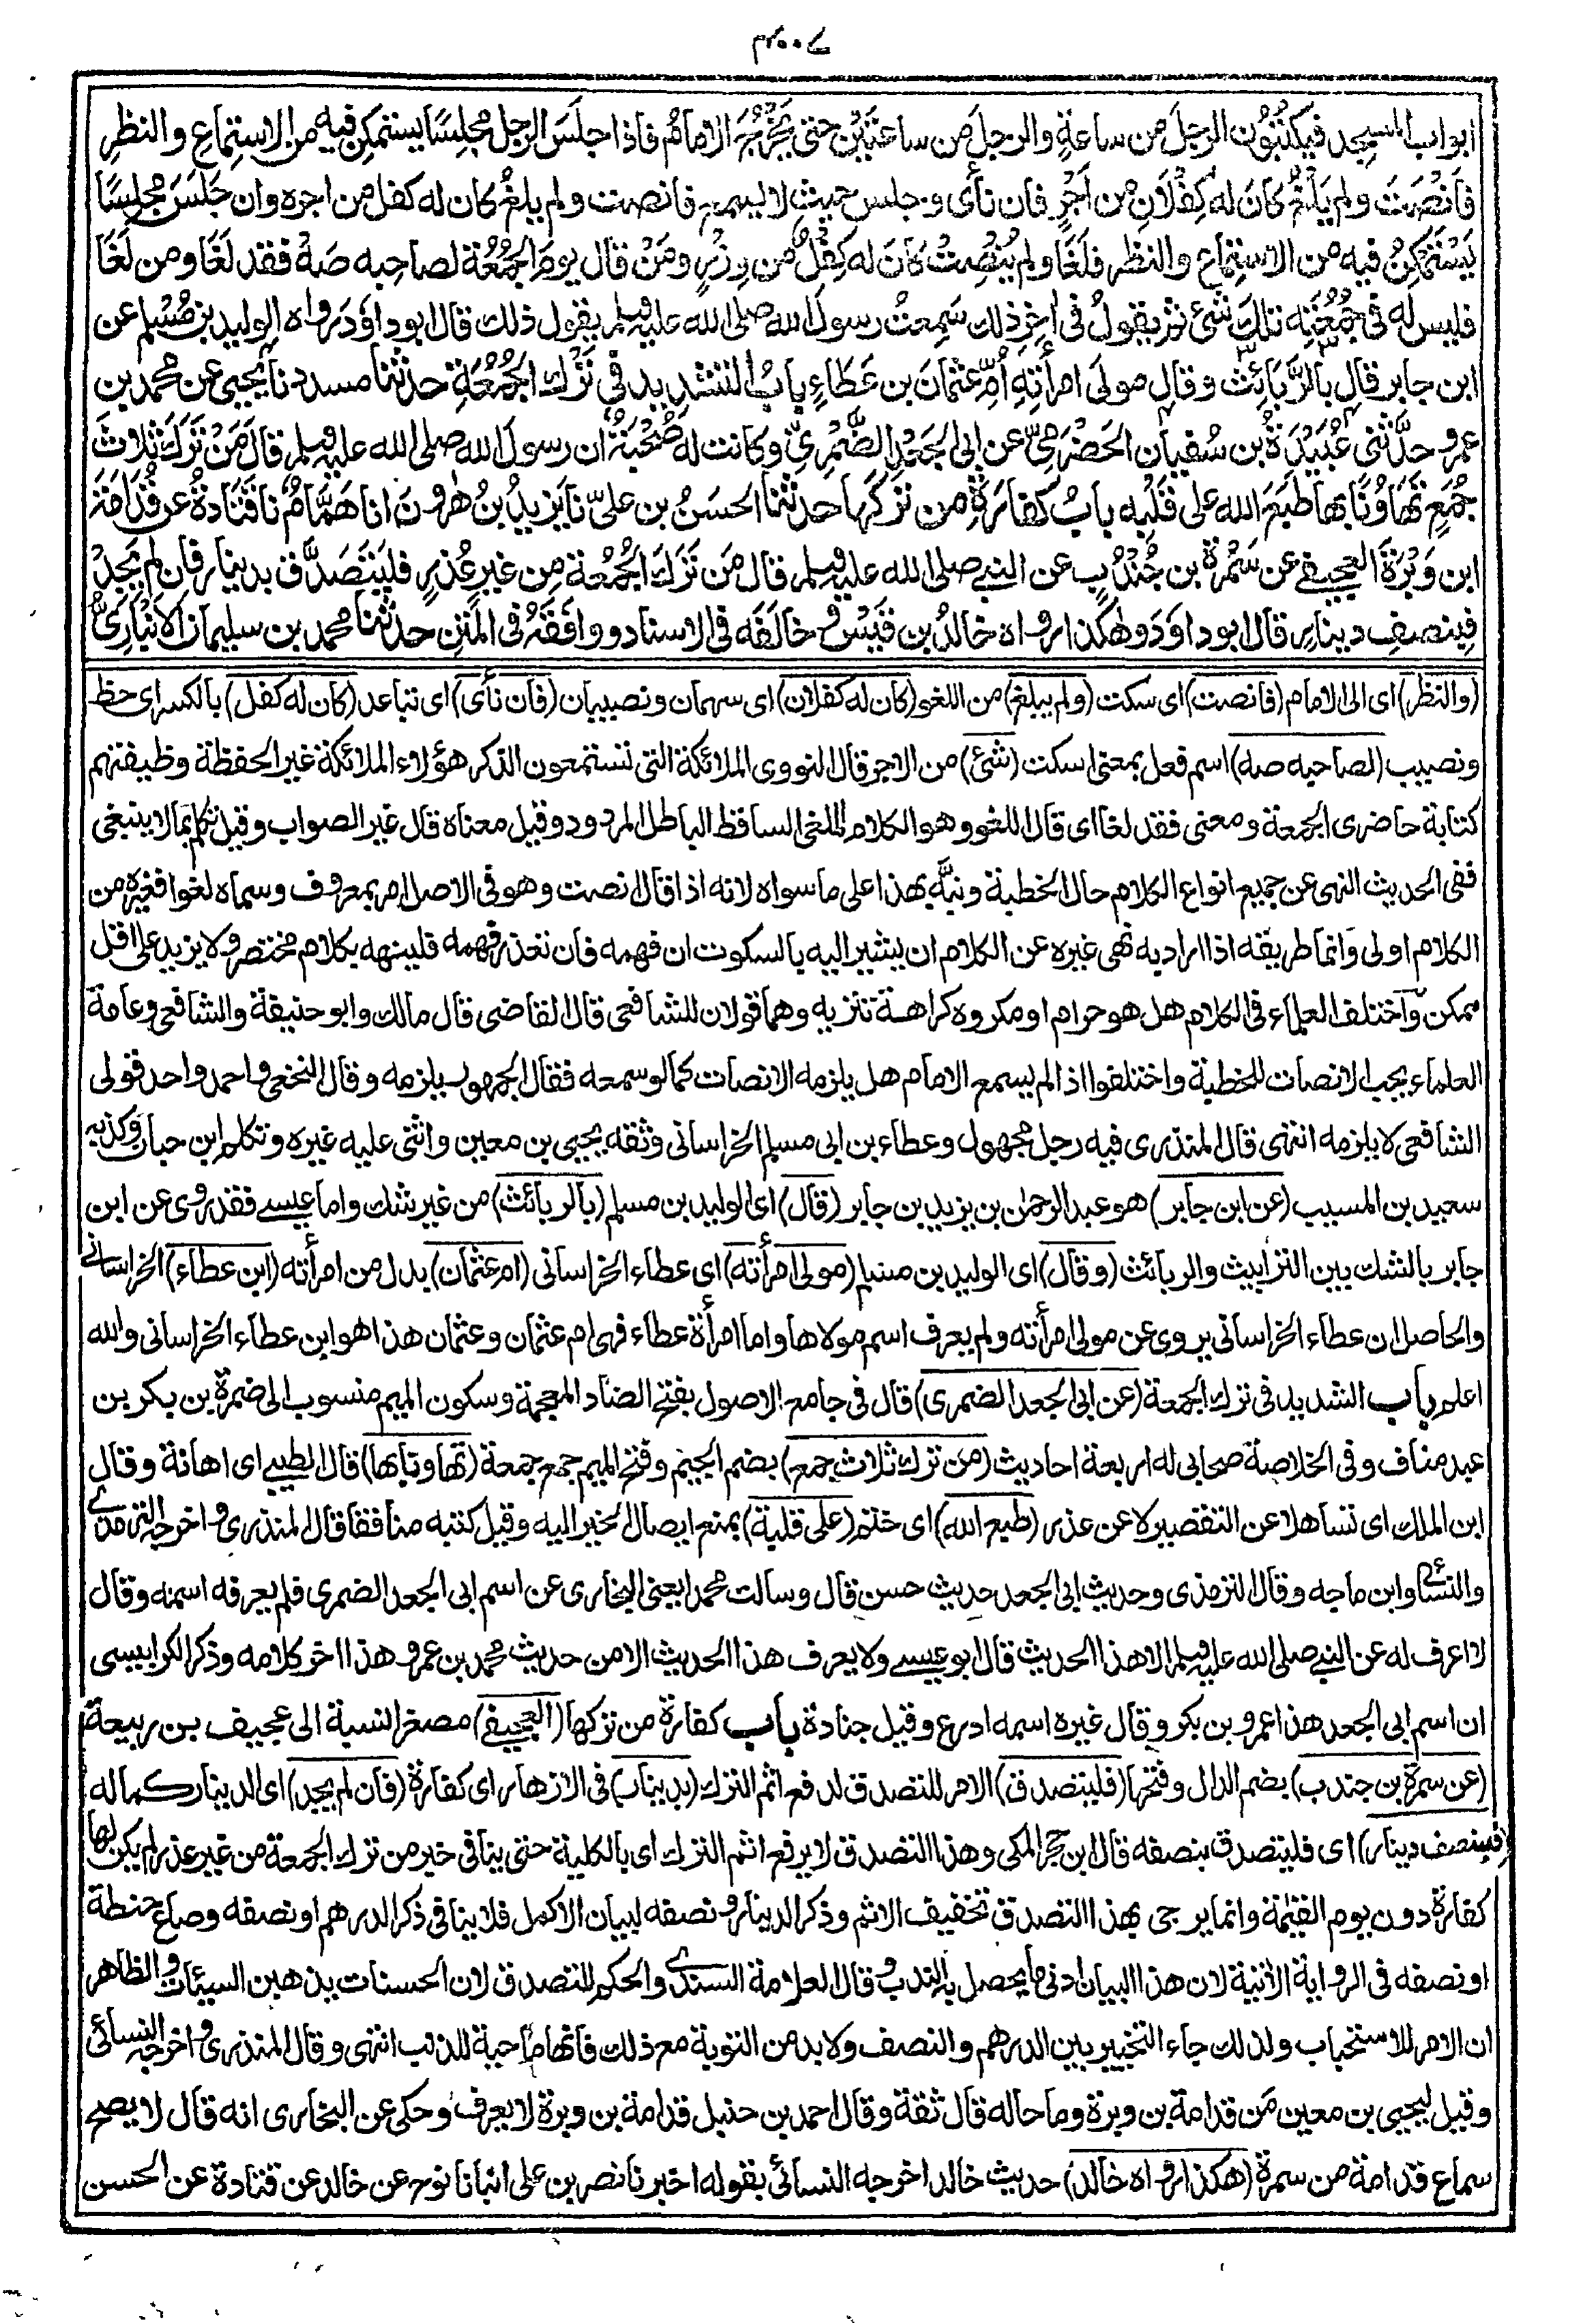 ٤٠٧
ابواب المسجد فيكتبون الرجلَ من ساعةٍ والرجلَ من ساعتَيْنِ حتى يَخْرُجَ الامامُ فاذا جلسَ الرجل مجلِسًا يستمكِن فيه من الاستِماعِ والنظرِ
فاَنْصَتَ ولم يَلْغُ كانَ له كِفْلَانِ من اَجْرٍ فان نأى وجلس حيث لا يسمع فانصت ولم يلغُ كان له كفل من اجره وان جَلَسَ مجلِسًا
يَسْتَمْكِنُ فيه من الاستِماعِ والنظرِ فلَغَا ولم يُنْصِتْ كانَ له كِفْلٌ من وِزْرٍ ومَنْ قال يومَ الجُمُعَة لصاحِبه صَهْ فقد لَغَا ومن لَغَا
فليس له في جُمُعَتِه تلكَ شئ ثم يقولُ في اٰخِرِ ذلك سَمِعتُ رسولَ الله صلى الله عليه وسلم يقول ذلك قال ابوداوَد رواه الوليد بن مُسْلم عن
ابن جابر قال بالرَّبَائِثِ وقال مولَى امرأتِهِ اُمِّ عثمَانَ بن عَطَاءٍ بابُ التشديد فى تَرْك الجُمُعَةِ حدثنا مسدد نا يحيى عن محمد بن
عمرو حدَّثنى عُبَيْدَةُ بن سُفيان الحَضْرَمِىّ عن ابى الجَعْدِ الضَّمْرِىّ وكانت له صُحْبَةٌ ان رسولَ الله صلى الله عليه وسلم قال مَنْ تَرَكَ ثلاثَ
جُمَعٍ تَهَاوُنًا بها طَبَعَ الله على قَلْبه بابُ كفارةِ من تركَها حدثنا الحَسَنُ بن علىّ نا يزيدُ بنُ هٰرونَ انا هَمَّامٌ نا قَتَادةُ عن قُدَامَةَ
ابن وَبْرَةَ العجيفى عن سَمُرةَ بن جُنْدُبٍ عن النبى صلى الله عليه وسلم قال مَن تَرَكَ الجُمُعةَ مِن غيرِ عُذرٍ فليَتَصَدَّق بدينارٍ فان لم يَجِدْ
فبنصفِ دينارٍ قال ابوداوَد وهٰكذا رواه خالدُ بن قَيْسٍ وخالَفَه فى الاسناد ووافَقَهُ فى المَتْنِ حدثنا محمد بن سليمان الاَنْبَارِىُّ
(والنظر) اى الى الامام (فانصت) اى سكت (ولم يبلغ) من اللغو (كان له كفلان) اى سهمان ونصيبان (فان نأى) اى تباعد (كان له كفل) بالكسر اى حظ
ونصيب (لصاحبه صه) اسم فعل بمعنى اسكت (شئ) من الاجر قال النووى الملائكة التى تستمعون الذكر هؤلاء الملائكة غير الحفظة وظيفتهم
كتابة حاضرى الجمعة ومعنى فقد لغا اى قال اللغو وهو الكلام الملغى الساقط الباطل المردود وقيل معناه قال غير الصواب وقيل تكلم بمالا ينبغى
ففى الحديث النهى عن جميع انواع الكلام حال الخطبة ونبَّه بهذا على ما سواه لانه اذا قال انصت وهو فى الاصل امر بمعروف وسماه لغوا فغيره من
الكلام اولى وانما طريقه اذا اراد به نهى غيره عن الكلام ان يشير اليه بالسكوت ان فهمه فان تعذر فهمه فلينهه بكلام مختصر ولا يزيد على اقل
ممكن واختلف العلماء فى الكلام هل هو حرام او مكروه كراهة تنزيه وهما قولان للشافعى قال القاضى قال مالك وابو حنيفة والشافعى وعامة
العلماء يجب الانصات للخطبة واختلفوا اذا لم يسمع الامام هل يلزمه الانصات كما لو سمعه فقال الجمهور يلزمه وقال النخعى واحمد واحد قولى
الشافعى لا يلزمه انتهى قال المنذرى فيه رجل مجهول وعطاء بن ابى مسلم الخراسانى وثقه يحيى بن معين واثنى عليه غيره وتكلم ابن حبان وكذبه
سعيد بن المسيب (عن ابن جابر) هو عبد الرحمٰن بن يزيد بن جابر (قال) اى الوليد بن مسلم (بالربائث) من غير شك واما عيسے فقد روى عن ابن
جابر بالشك بين الترابيث والربائث (وقال) اى الوليد بن مسلم (مولى امرأته) اى عطاء الخراسانى (ام عثمان) بدل من امرأته (ابن عطاء) الخراسانى
والحاصل ان عطاء الخراسانى يروى عن مولى امرأته ولم يعرف اسم مولاها واما امرأة عطاء فهى ام عثمان وعثمان هذا هو ابن عطاء الخراسانى والله
اعلم باب الشديد فى ترك الجمعة (عن ابى الجعد الضمرى) قال فى جامع الاصول بفتح الضاد المعجمة وسكون الميم منسوب الى ضمرة بن بكر بن
عبد مناف وفى الخلاصة صحابى له اربعة احاديث (من ترك ثلاث جمع) بضم الجيم وفتح الميم جمع جمعة (تهاونا بها) قال الطيبے اى اهانة وقال
ابن الملك اى تساهلا عن التقصير لا عن عذر (طبع الله) اى ختم (على قلبه) بمنع ايصال الخير اليه وقيل كتبه منافقا قال المنذرى واخرجه الترمذے
والنسائى وابن ماجه وقال الترمذى وحديث ابى الجعد حديث حسن قال وسالت محمدا يعنى البخارى عن اسم ابى الجعد الضمرى فلم يعرفه اسمه وقال
لا اعرف له عن النبے صلى الله عليه وسلم الا هذا الحديث قال ابو عيسے ولا يعرف هذا الحديث الا من حديث محمد بن عمرو هذا اٰخر كلامه وذكر الكرابيسى
ان اسم ابى الجعد هذا عمرو بن بكر وقال غيره اسمه ادرع وقيل جنادة باب كفارة من تركها (العجيفے) مصغر النسبة الى عجيف بن ربيعة
(عن سمرة بن جندب) بضم الدال وفتحها (فليتصدق) الامر للتصدق لدفع اثم الترك (بدينار) فى الازهار اى كفارة (فان لم يجد) اى الدينار كماله
(فبنصف دينار) اى فليتصدق بنصفه قال ابن حجر المكى وهذا التصدق لا يرفع اثم الترك اى بالكلية حتى ينافى خبر من ترك الجمعة من غير عذر لم يكن لها
كفارة دون يوم القيٰمة وانما يرجى بهذا التصدق تخفيف الاثم وذكر الدينار ونصفه لبيان الاكمل فلا ينافى ذكر الدرهم او نصفه وصاع حنطة
او نصفه فى الرواية الاٰتية لان هذا البيان ادنى ما يحصل به الندب وقال العلامة السندى والحكم للتصدق لان الحسنات يذهبن السيئات والظاهر
ان الامر للاستحباب ولذلك جاء التخيير بين الدرهم والنصف ولا بد من التوبة مع ذلك فانها ماحية للذنب انتهى وقال المنذرى واخرجه النسائى
وقيل ليحيى بن معين مَن قدامة بن وبرة وما حاله قال ثقة وقال احمد بن حنبل قدامة بن وبرة لا يعرف وحكى عن البخارى انه قال لا يصح
سماع قدامة من سمرة (هكذا رواه خالد) حديث خالد اخرجه النسائى بقوله اخبرنا نصر بن على انبانا نوح عن خالد عن قتادة عن الحسن